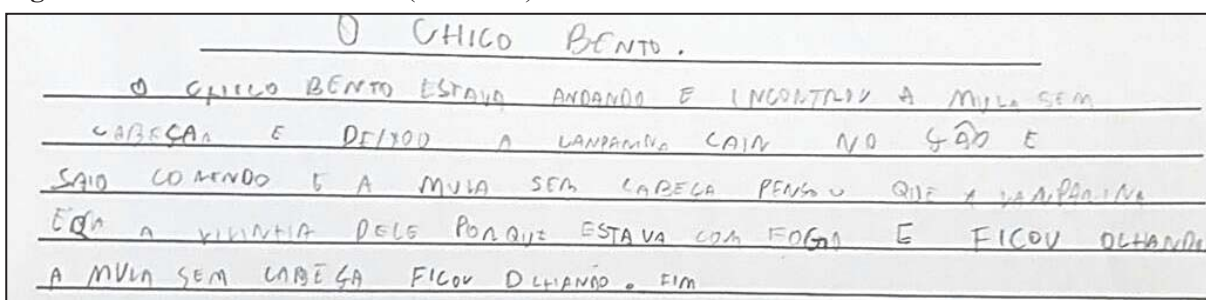 O CHICO BENTO.
O CHICO BENTO ESTAVA ANDANDO E INCONTROU A MULA SEM
CABEÇAR E DEIXOO A LANPARINA CAIR NO ÇÃO E
SAIO CORENDO E A MULA SEM CABEÇA PENSOU QUE A LANPARINA
ERA A DELE PORQUE ESTAVA COM FOGO E FICOU OLHANDO
A MULA SEM CABEÇA FICOU OLHANDO. FIM